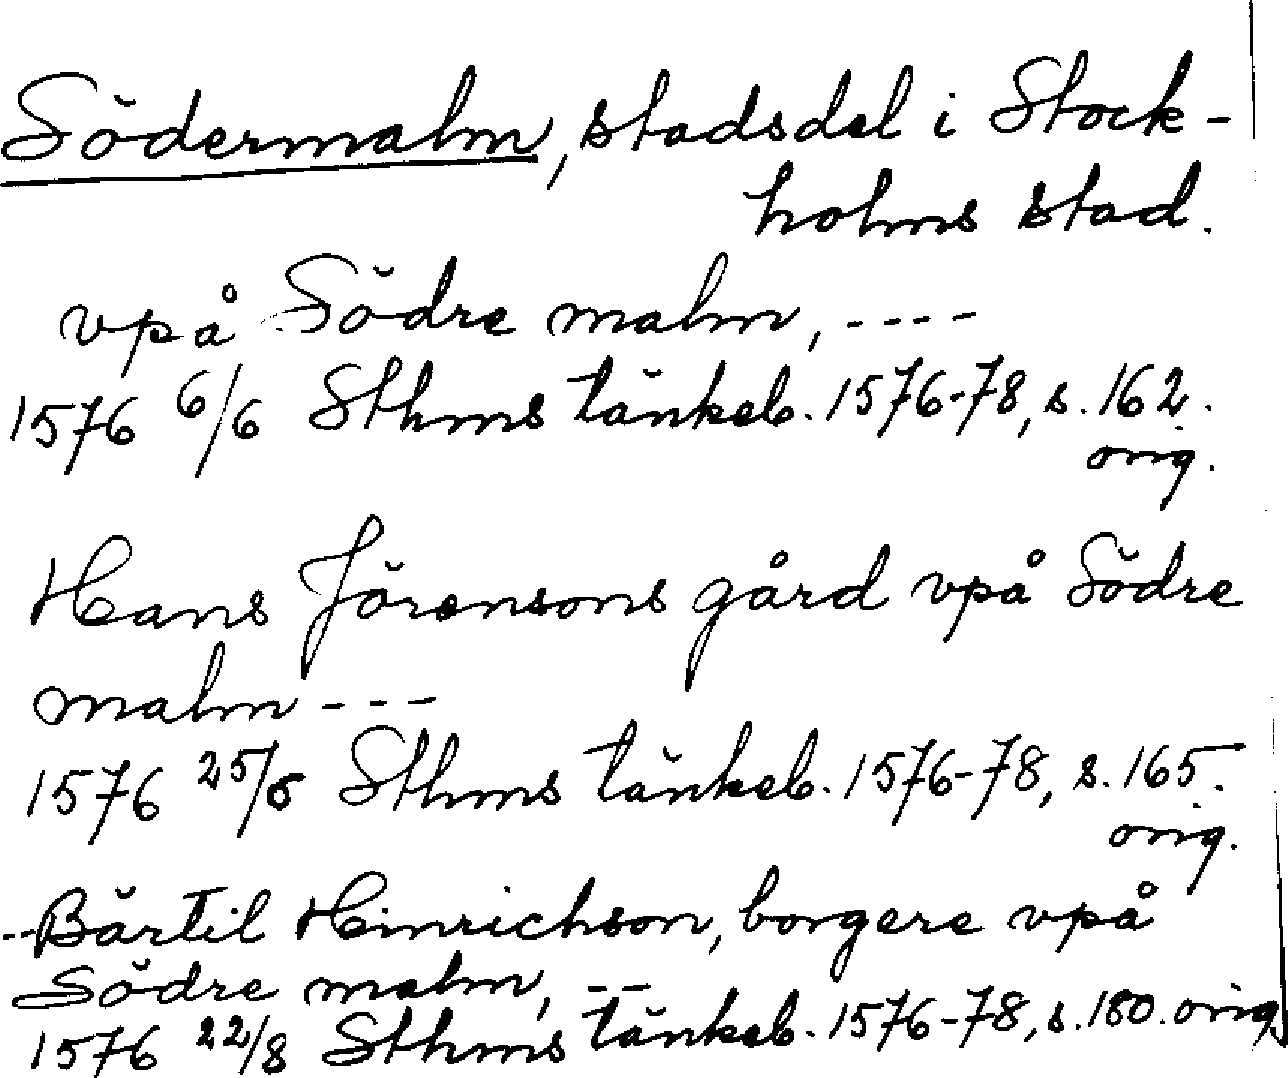 Södermalm, stadsdel i Stock-
holms stad.
vpå Södre malm, ----
1576 6/6 Sthms tänkeb. 1576-78, s. 162.
orig.
Hans Jörensons gård vpå Södre
malm ---
1576 25/6 Sthms tänkeb. 1576-78, s. 165.
orig.
--Bärtil Hinrichson, borgere vpå
Södre malm, --
1576 22/8 Sthms tänkeb. 1576-78, s. 180. orig.